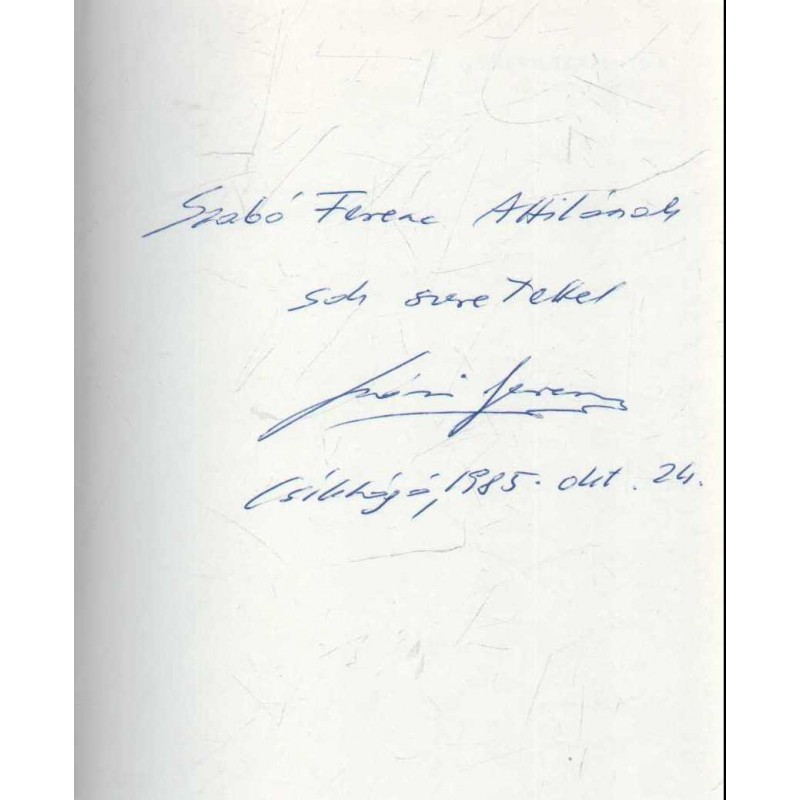 Szabó Ferenc Attilának
sok szeretettel
Ferenc
1985. okt. 24.